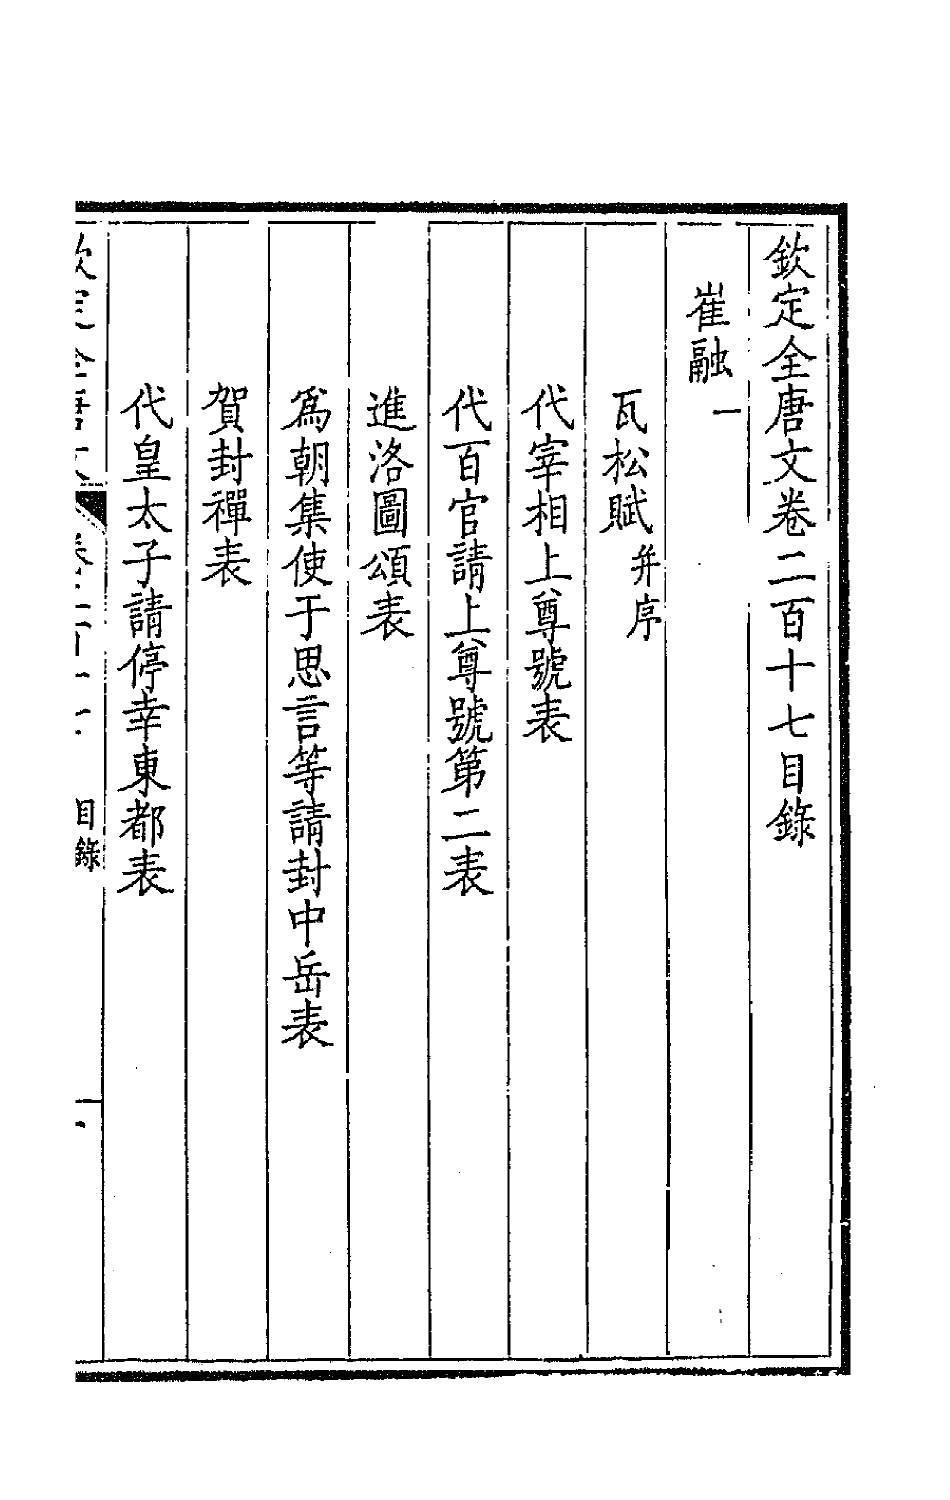 欽定全唐文卷二百十七目錄
崔融一
瓦松賦并序
代宰相上尊號表
代百官請上尊號第二表
進洛圖頌表
爲朝集使于思言等請封中岳表
賀封禪表
代皇太子請停幸東都表
目錄